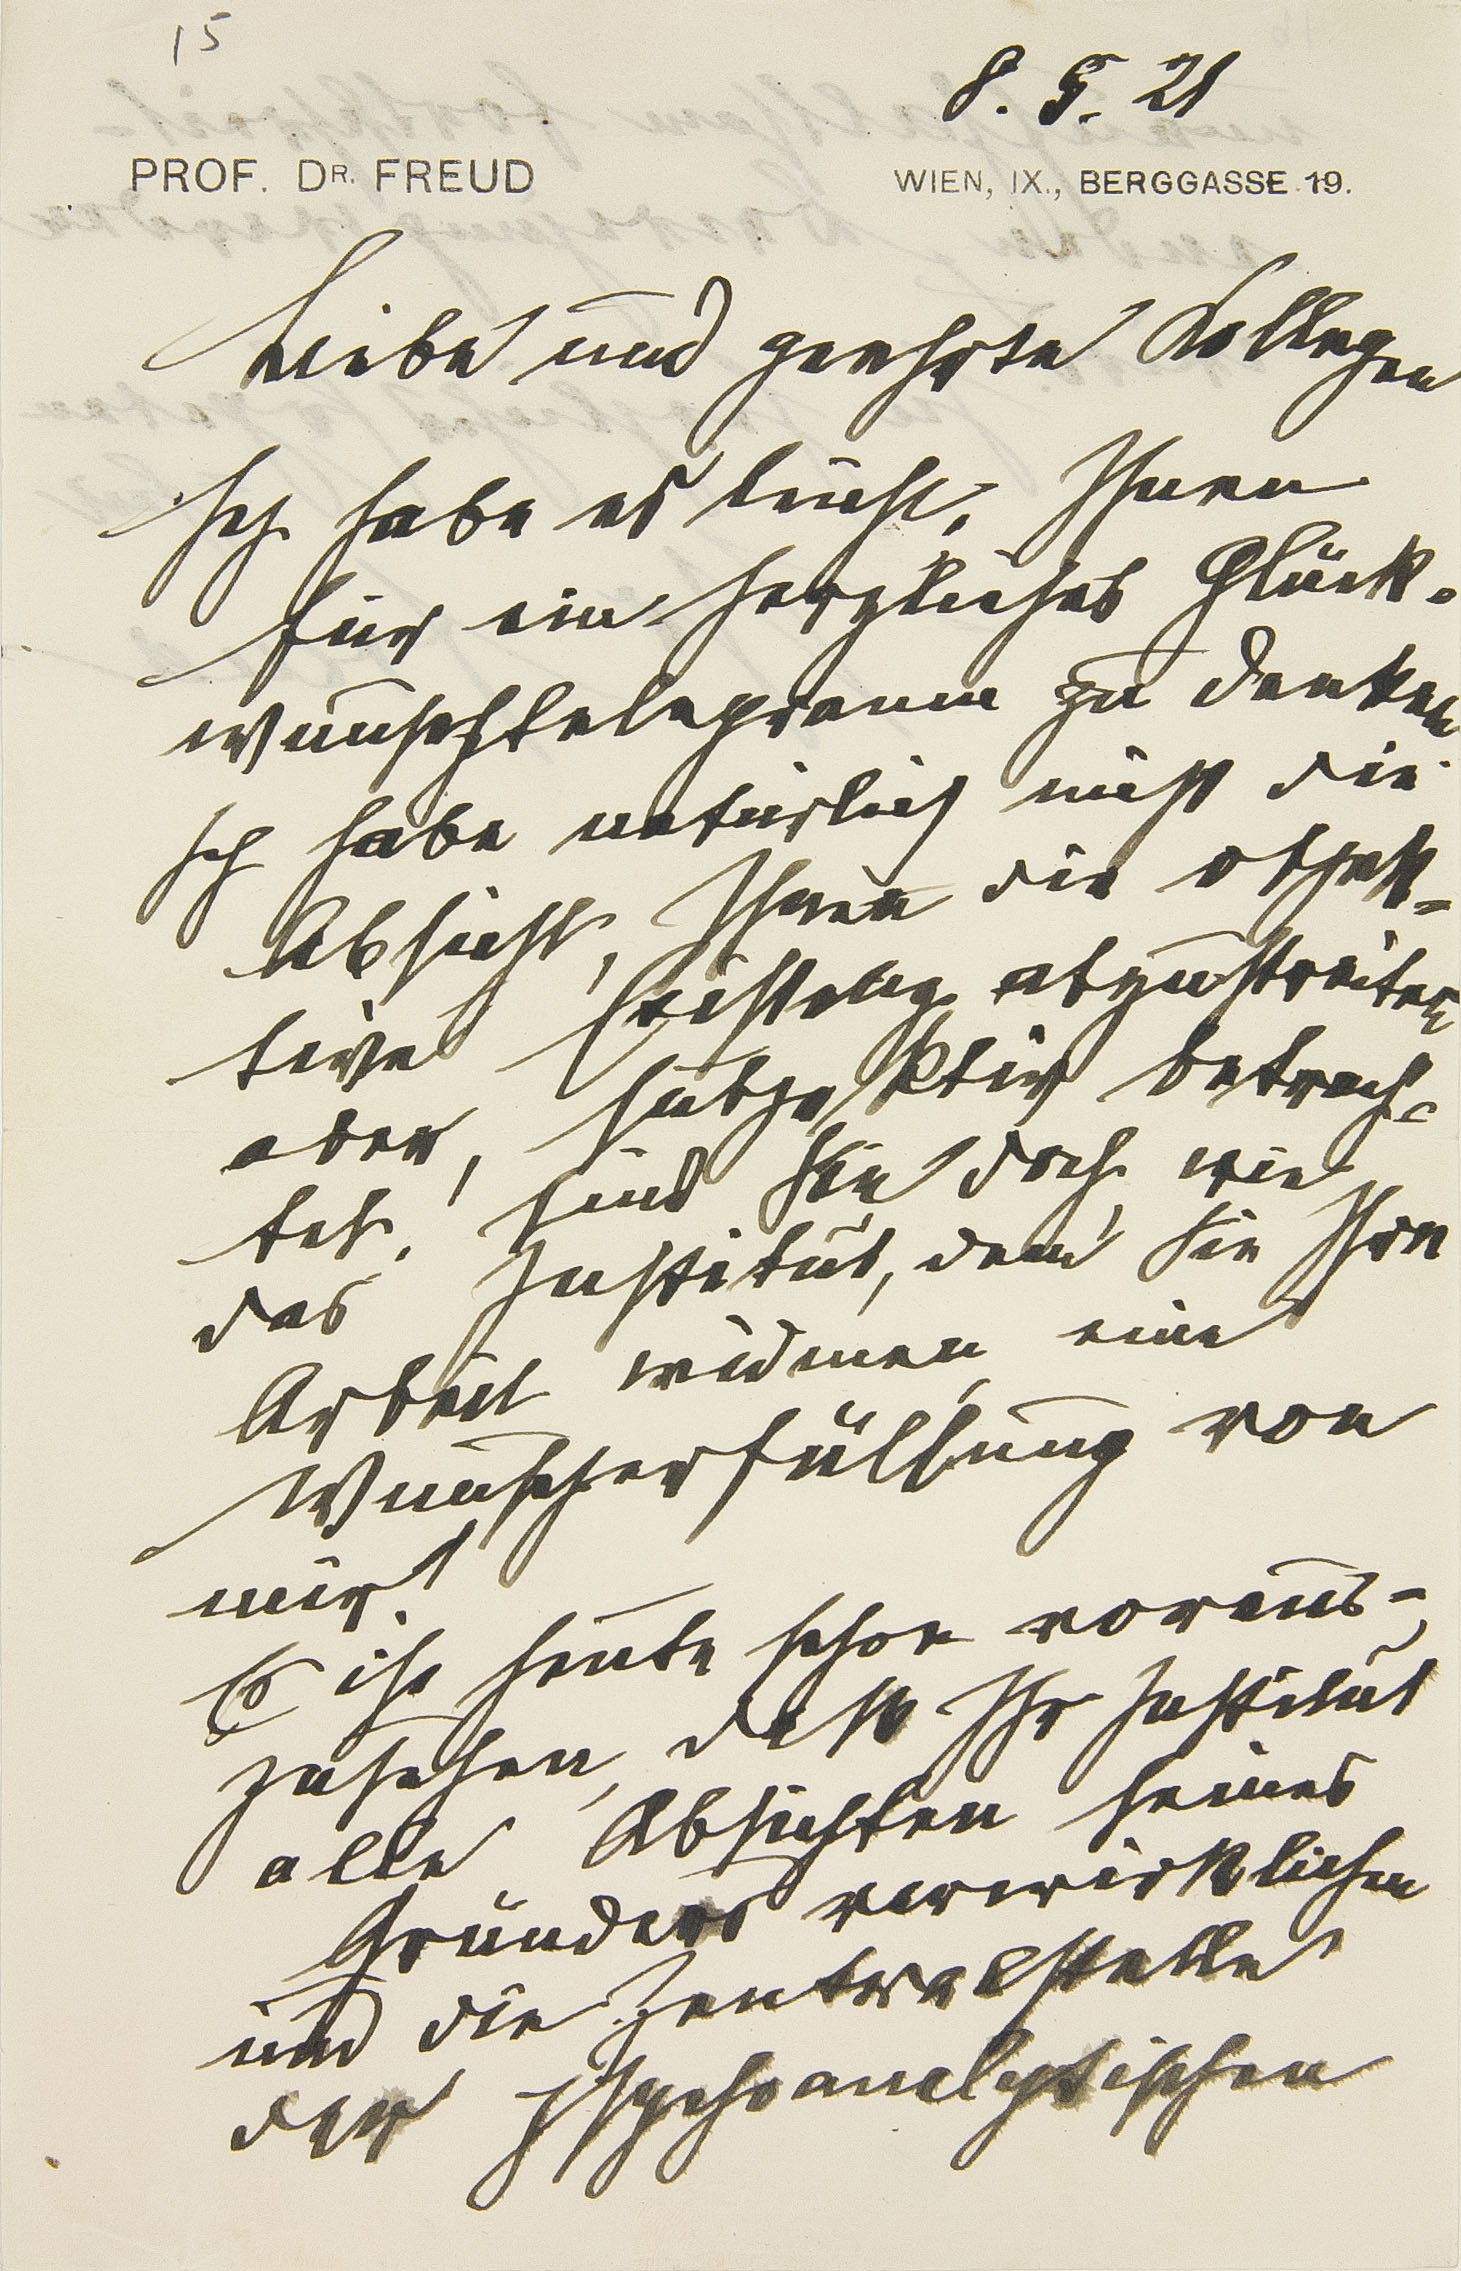 15
8. 5. 21
PROF. DR. FREUD
WIEN, IX., BERGGASSE 19.
Liebe und geehrte Kollegen
Ich habe es leicht, Ihnen
für ein herzliches Glück-
wunschtelegramm zu danken
Ich habe natürlich nicht die
Absicht, Ihnen die objek-
tive Existenz abzustreiten
aber, subjektiv betrach-
tet, sind Sie doch wie
das Institut, dem Sie Ihre
Arbeit widmen, eine
Wunscherfüllung von
mir!
Es ist heute schon voraus-
zusehen, daß Ihr Institut
alle Absichten seines
Gründers verwirklichen
und die Zentralstelle
der psychoanalytischen